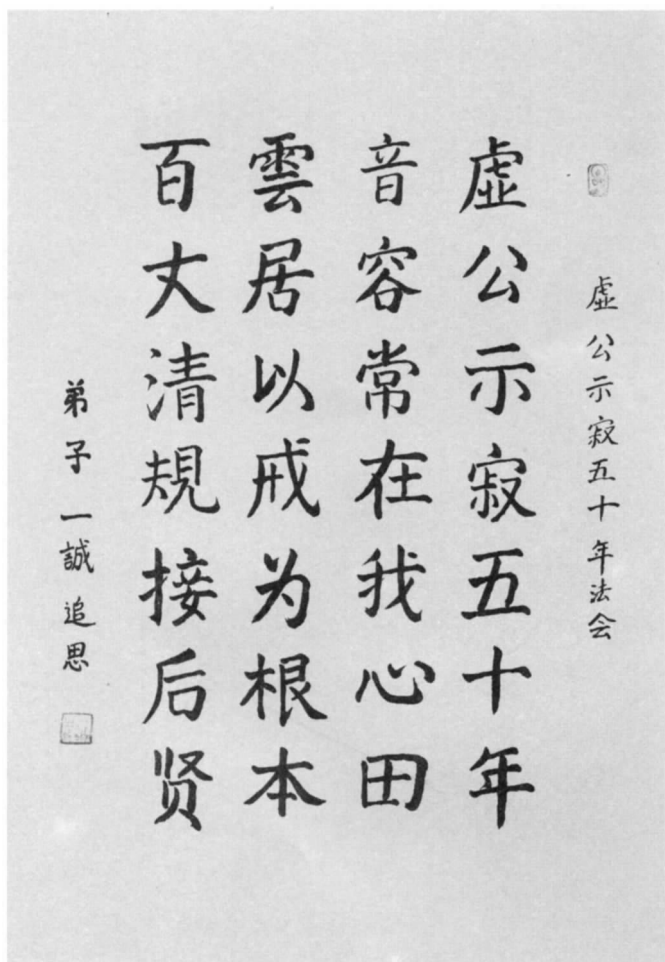 虚公示寂五十年法会
虚公示寂五十年
音容常在我心田
雲居以戒为根本
百丈清規接后贤
弟子一誠追思